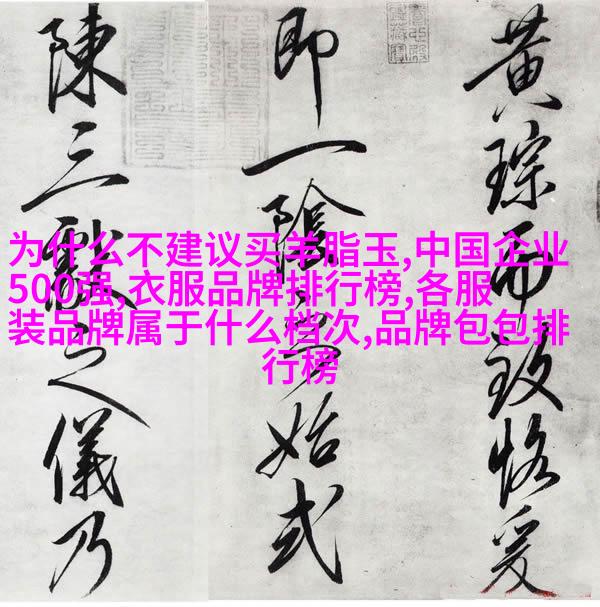 为什么不建议买羊脂玉,中国企业
500强,衣服品牌排行榜,各服
装品牌属于什么档次,品牌包包排
行榜
黄琮而致恪爰
即一陰始式
陳三獻之儀乃